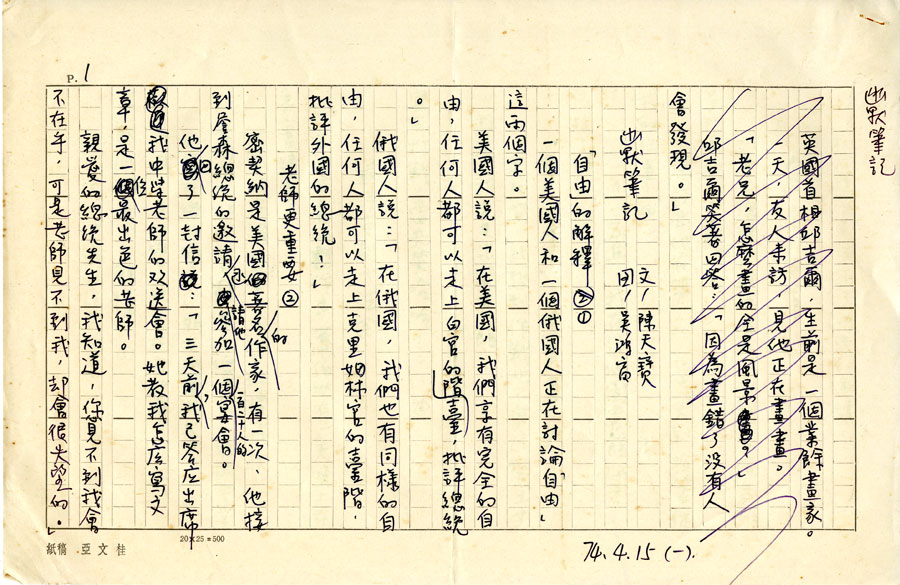 幽默筆記
P. 1
英國首相邱吉爾，生前是一個業餘畫家。
一天，友人來訪，見他正在畫畫。
「老兄，怎麼畫的全是風景？」
邱吉爾笑著回答：「因為畫錯了沒有人
會發現。」
幽默筆記
文／陳天寶
圖／吳鴻富
「自由」的解釋①
一個美國人和一個俄國人正在討論「自由」
這兩個字。
美國人說：「在美國，我們享有完全的自
由，任何人都可以走上白宮的階臺，批評總統
。」
俄國人說：「在俄國，我們也有同樣的自
由，任何人都可以走上克里姆林宮的臺階，
批評外國的總統！」
老師更重要②
密契納是美國的著名作家，有一次，他接
到詹森總統的邀請函，請他參加一個宴會。
他回了一封信說：「三天前，我已答應出席一百二十人的
歡送我中學老師的歡送會。她教我怎麼寫文
章，是一位最出色的老師。
親愛的總統先生，我知道，您見不到我會
不在乎，可是老師見不到我，却會很失望的。」
74.4.15 (一).
20×25=500
紙稿 亞文桂